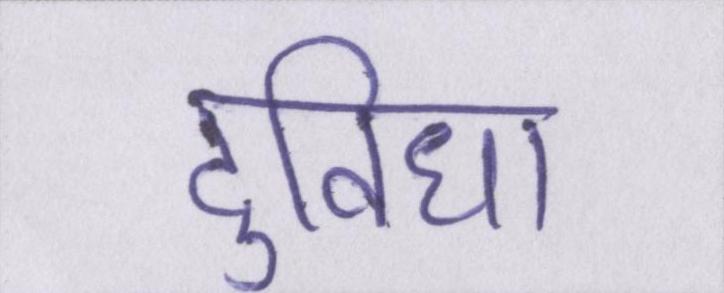 दुविधा